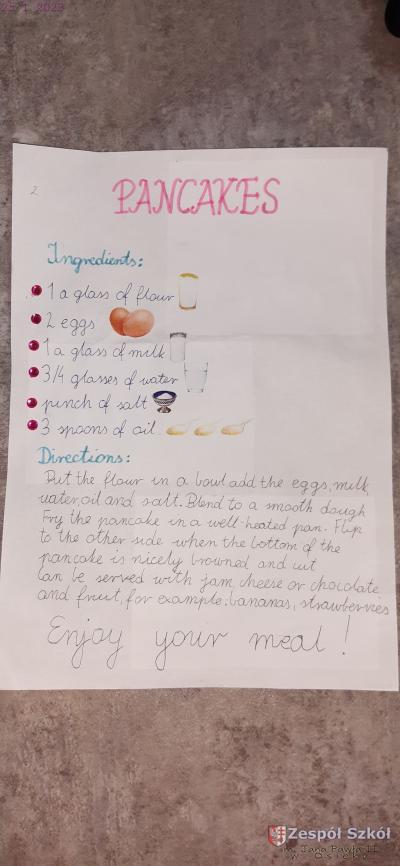 25.1.2023
2
PANCAKES
Ingredients:
1 a glass of flour
2 eggs
1 a glass of milk
3/4 glasses of water
pinch of salt
3 spoons of oil
Directions:
Put the flour in a bowl add the eggs, milk,
water, oil and salt. Blend to a smooth dough
Fry the pancake in a well-heated pan. Flip
to the other side when the bottom of the
pancake is nicely browned and cut
Can be served with jam, cheese or chocolate
and fruit, for example: bananas, strawberries
Enjoy your meal!
Zespół Szkół
im. Jana Pawła II
w Osieku